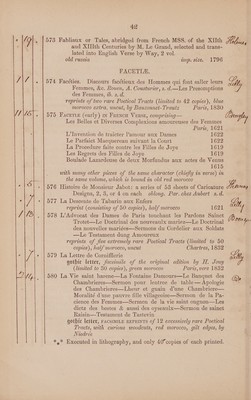 42
573 Fabliaux or Tales, abridged from French MSS. of the XIIth
and XIIIth Centuries by M. Le Grand, selected and trans-
lated into English Verse by Way, 2 vol.
old russia imp. 8vo. 1796
FACETIÆ.
574 Facétiæ. Discours facétieux des Hommes qui font saller leurs
Femmes, &c. Rouen, A. Cousturier, s. d.—Les Pronostications
des Femmes, ib. s. d.
reprints of two rare Poetical Tracts (limited to 42 copies), blue
morocco extra, uncut, by Duncanson Paris, 1830
575 Facetiæ (early) in French Verse, comprising:—
Les Belles et Diverses Complexions amoureuses des Femmes
Paris, 1621
L'Invention de traicter l'amour aux Dames 1622
Le Parfaict Marquereau suivant la Court 1622
La Procedure faite contre les Filles de Joye 1619
Les Regrets des Filles de Joye 1619
Boutade Lamentense de deux Morfondus aux actes de Venus
1616
with many other pieces of the same character (chiefly in verse) in
the same volume, which is bound in old red morocco
576 Histoire de Monsieur Jabot: a series of 52 sheets of Caricature
Designs, 2, 3, or 4 on each oblong. Par chez Aubert s. d.
577 La Descente de Tabarin aux Enfers
reprint (consisting of 50 copies), half morocco 1621
578 L'Advent des Dames de Paris touchant les Pardons Sainct
Trotet—Le Doctrinal des nouveaulx mariés—Le Doctrinal
des nouvelles mariées—Sermons du Cordelier aux Soldats
—Le Testament dung Amoureux
reprints of five extremely rare Poetical Tracts (limited to 50
copies), half morocco, uncut Chartres, 1832
579 La Lettre de Corniflerie
gothic letter, facsimile of the original edition by H. Jouy
(limited to 50 copies), green morocco Paris, circa 1832
580 La Vie saint Harenc—La Fontaine Damours—Le Banquet des
Chambrieres—Sermon pour lentree de table—Apologie
des Chambrieres—Lheur et guain d'une Chambriere—
Moralité d'une pauvre fille villageoise—Sermon de la Pa-
cience des Femmes—Sermon de la vie saint ongnon—Les
dictz des bestes & aussi des oyseaulx—Sermon de sainct
Raisin—Testament de Taste vin
gothic letter, facsimile reprints of 12 excessively rare Poetical
Tracts, with curious woodcuts, red morocco, gilt edges, by
Niedrée
*** Executed in lithography, and only 40 copies of each printed.